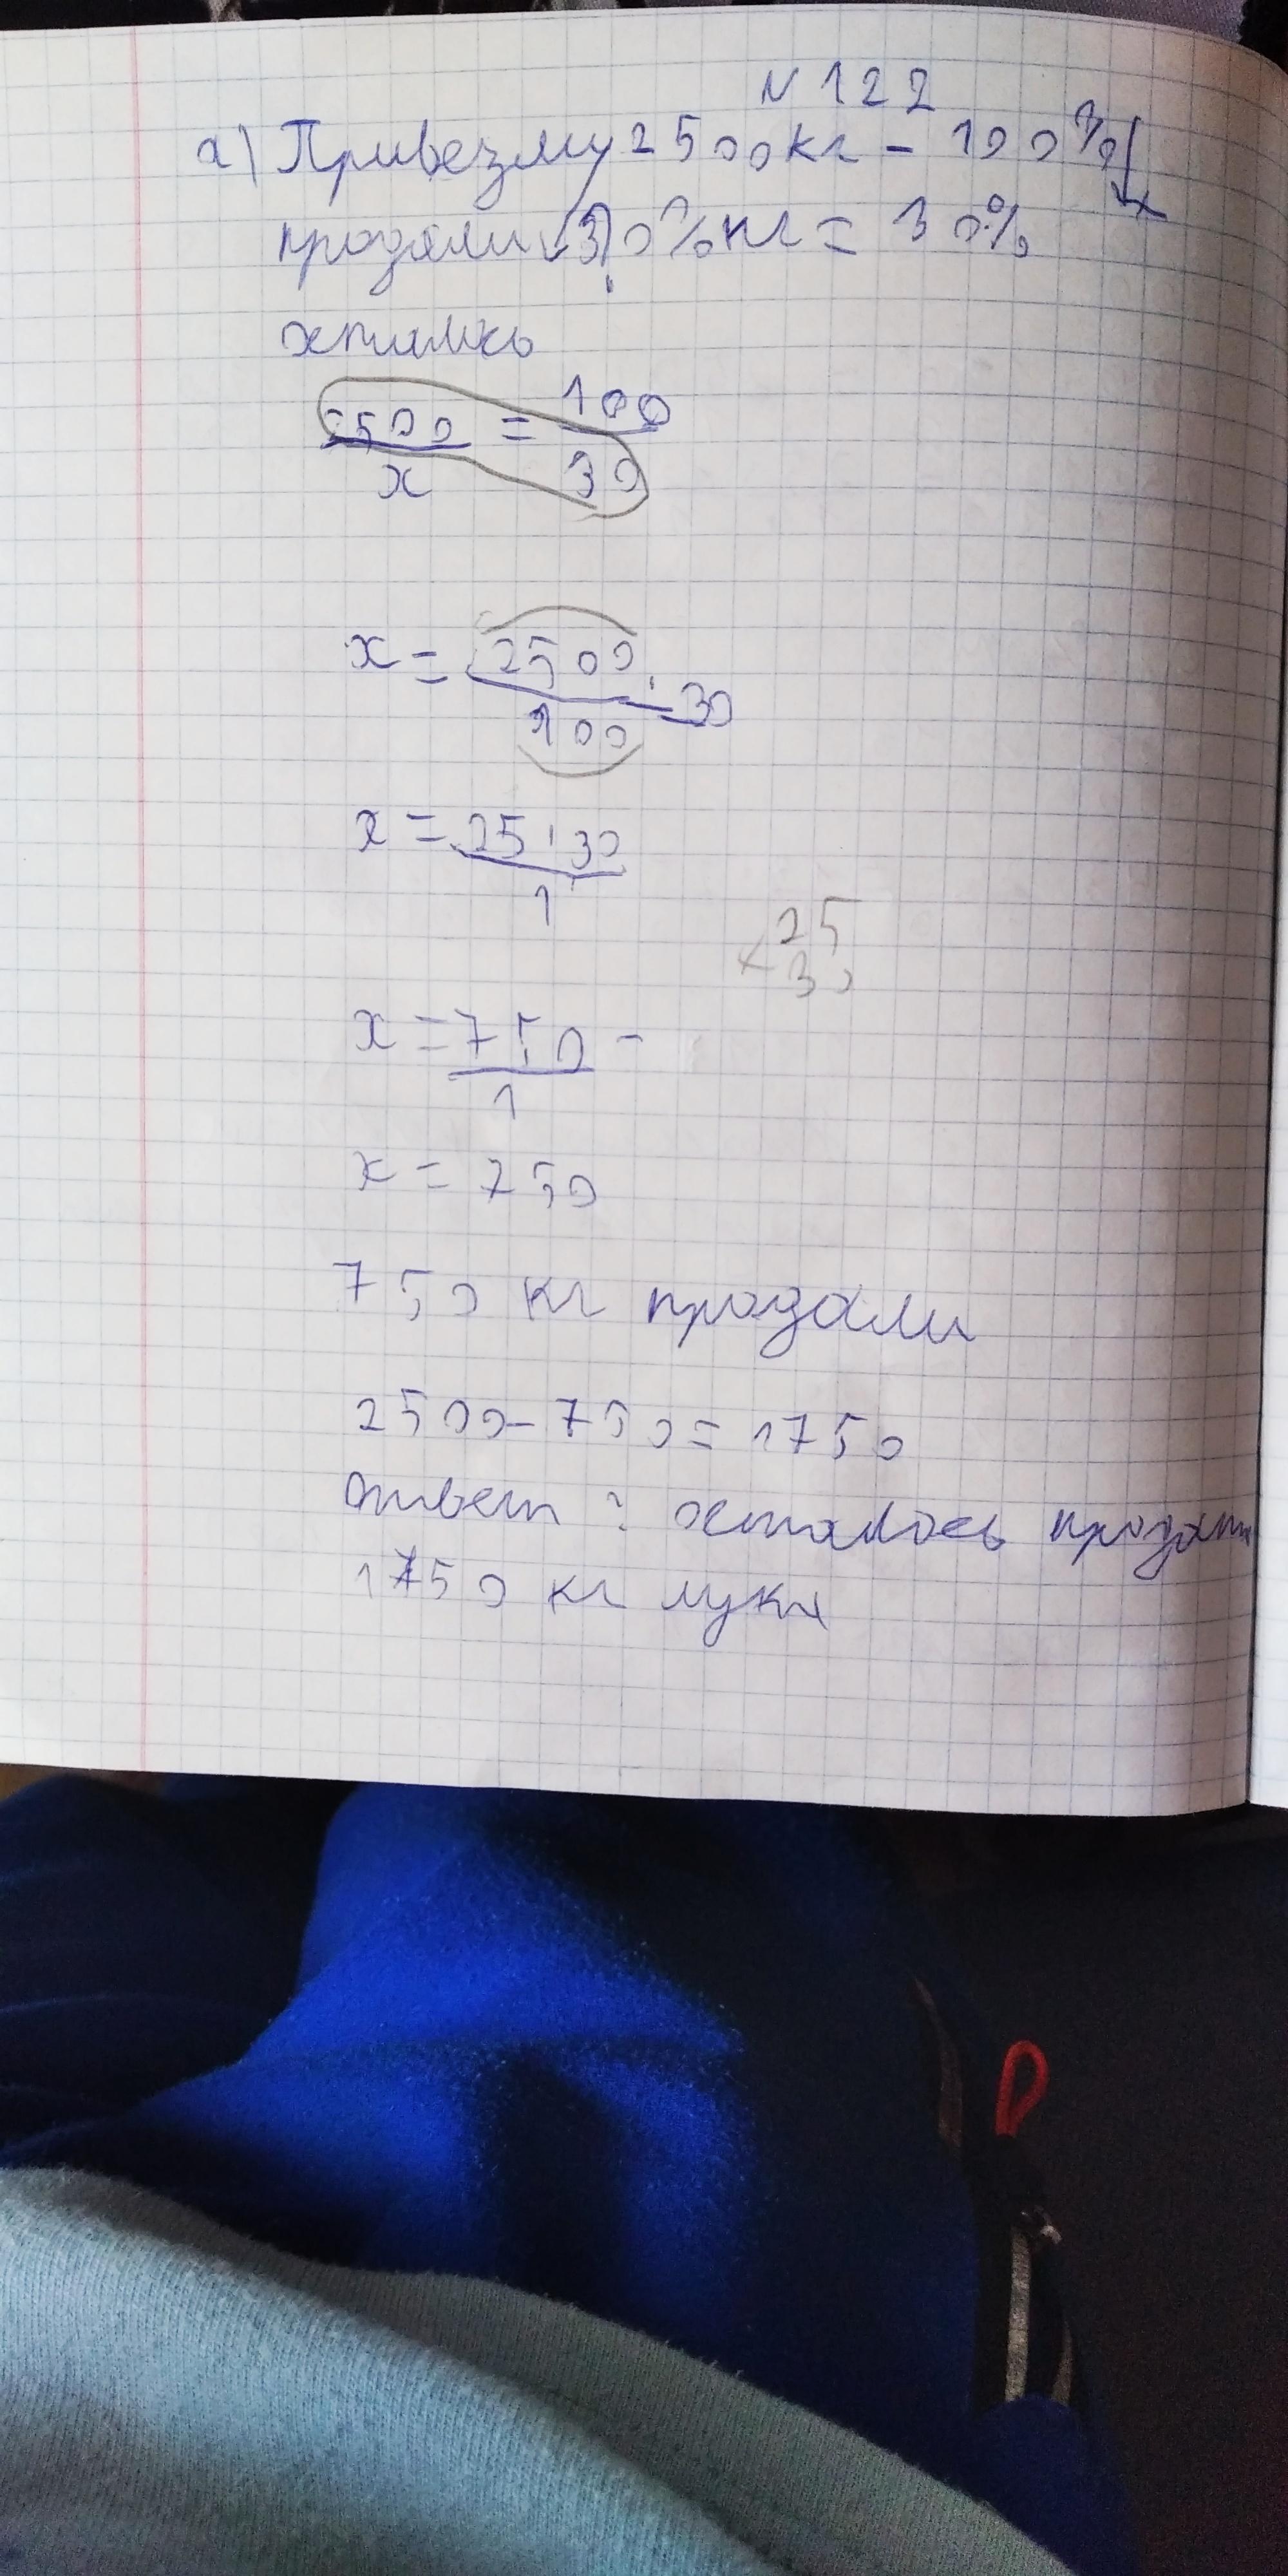 N 122
а) Привезли 2500кг - 100%
продали 30%кг = 30%
осталось
2500 = 100
x 30
x = 2500 · 30
100
x = 25 · 30
1
25
× 30
x = 750 -
1
x = 750
750 кг продали
2500-750=1750
Ответ : осталось продать
1750 кг лука